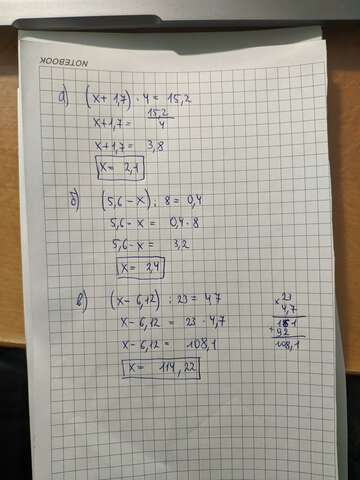 NOTEBOOK
а) (x + 1,7) · 4 = 15,2
x + 1,7 = 15,2 / 4
x + 1,7 = 3,8
x = 2,1
б) (5,6 - x) : 8 = 0,4
5,6 - x = 0,4 · 8
5,6 - x = 3,2
x = 2,4
в) (x - 6,12) : 23 = 4,7
x - 6,12 = 23 · 4,7
x - 6,12 = 108,1
x = 114,22
× 23
4,7
161
+ 92
108,1